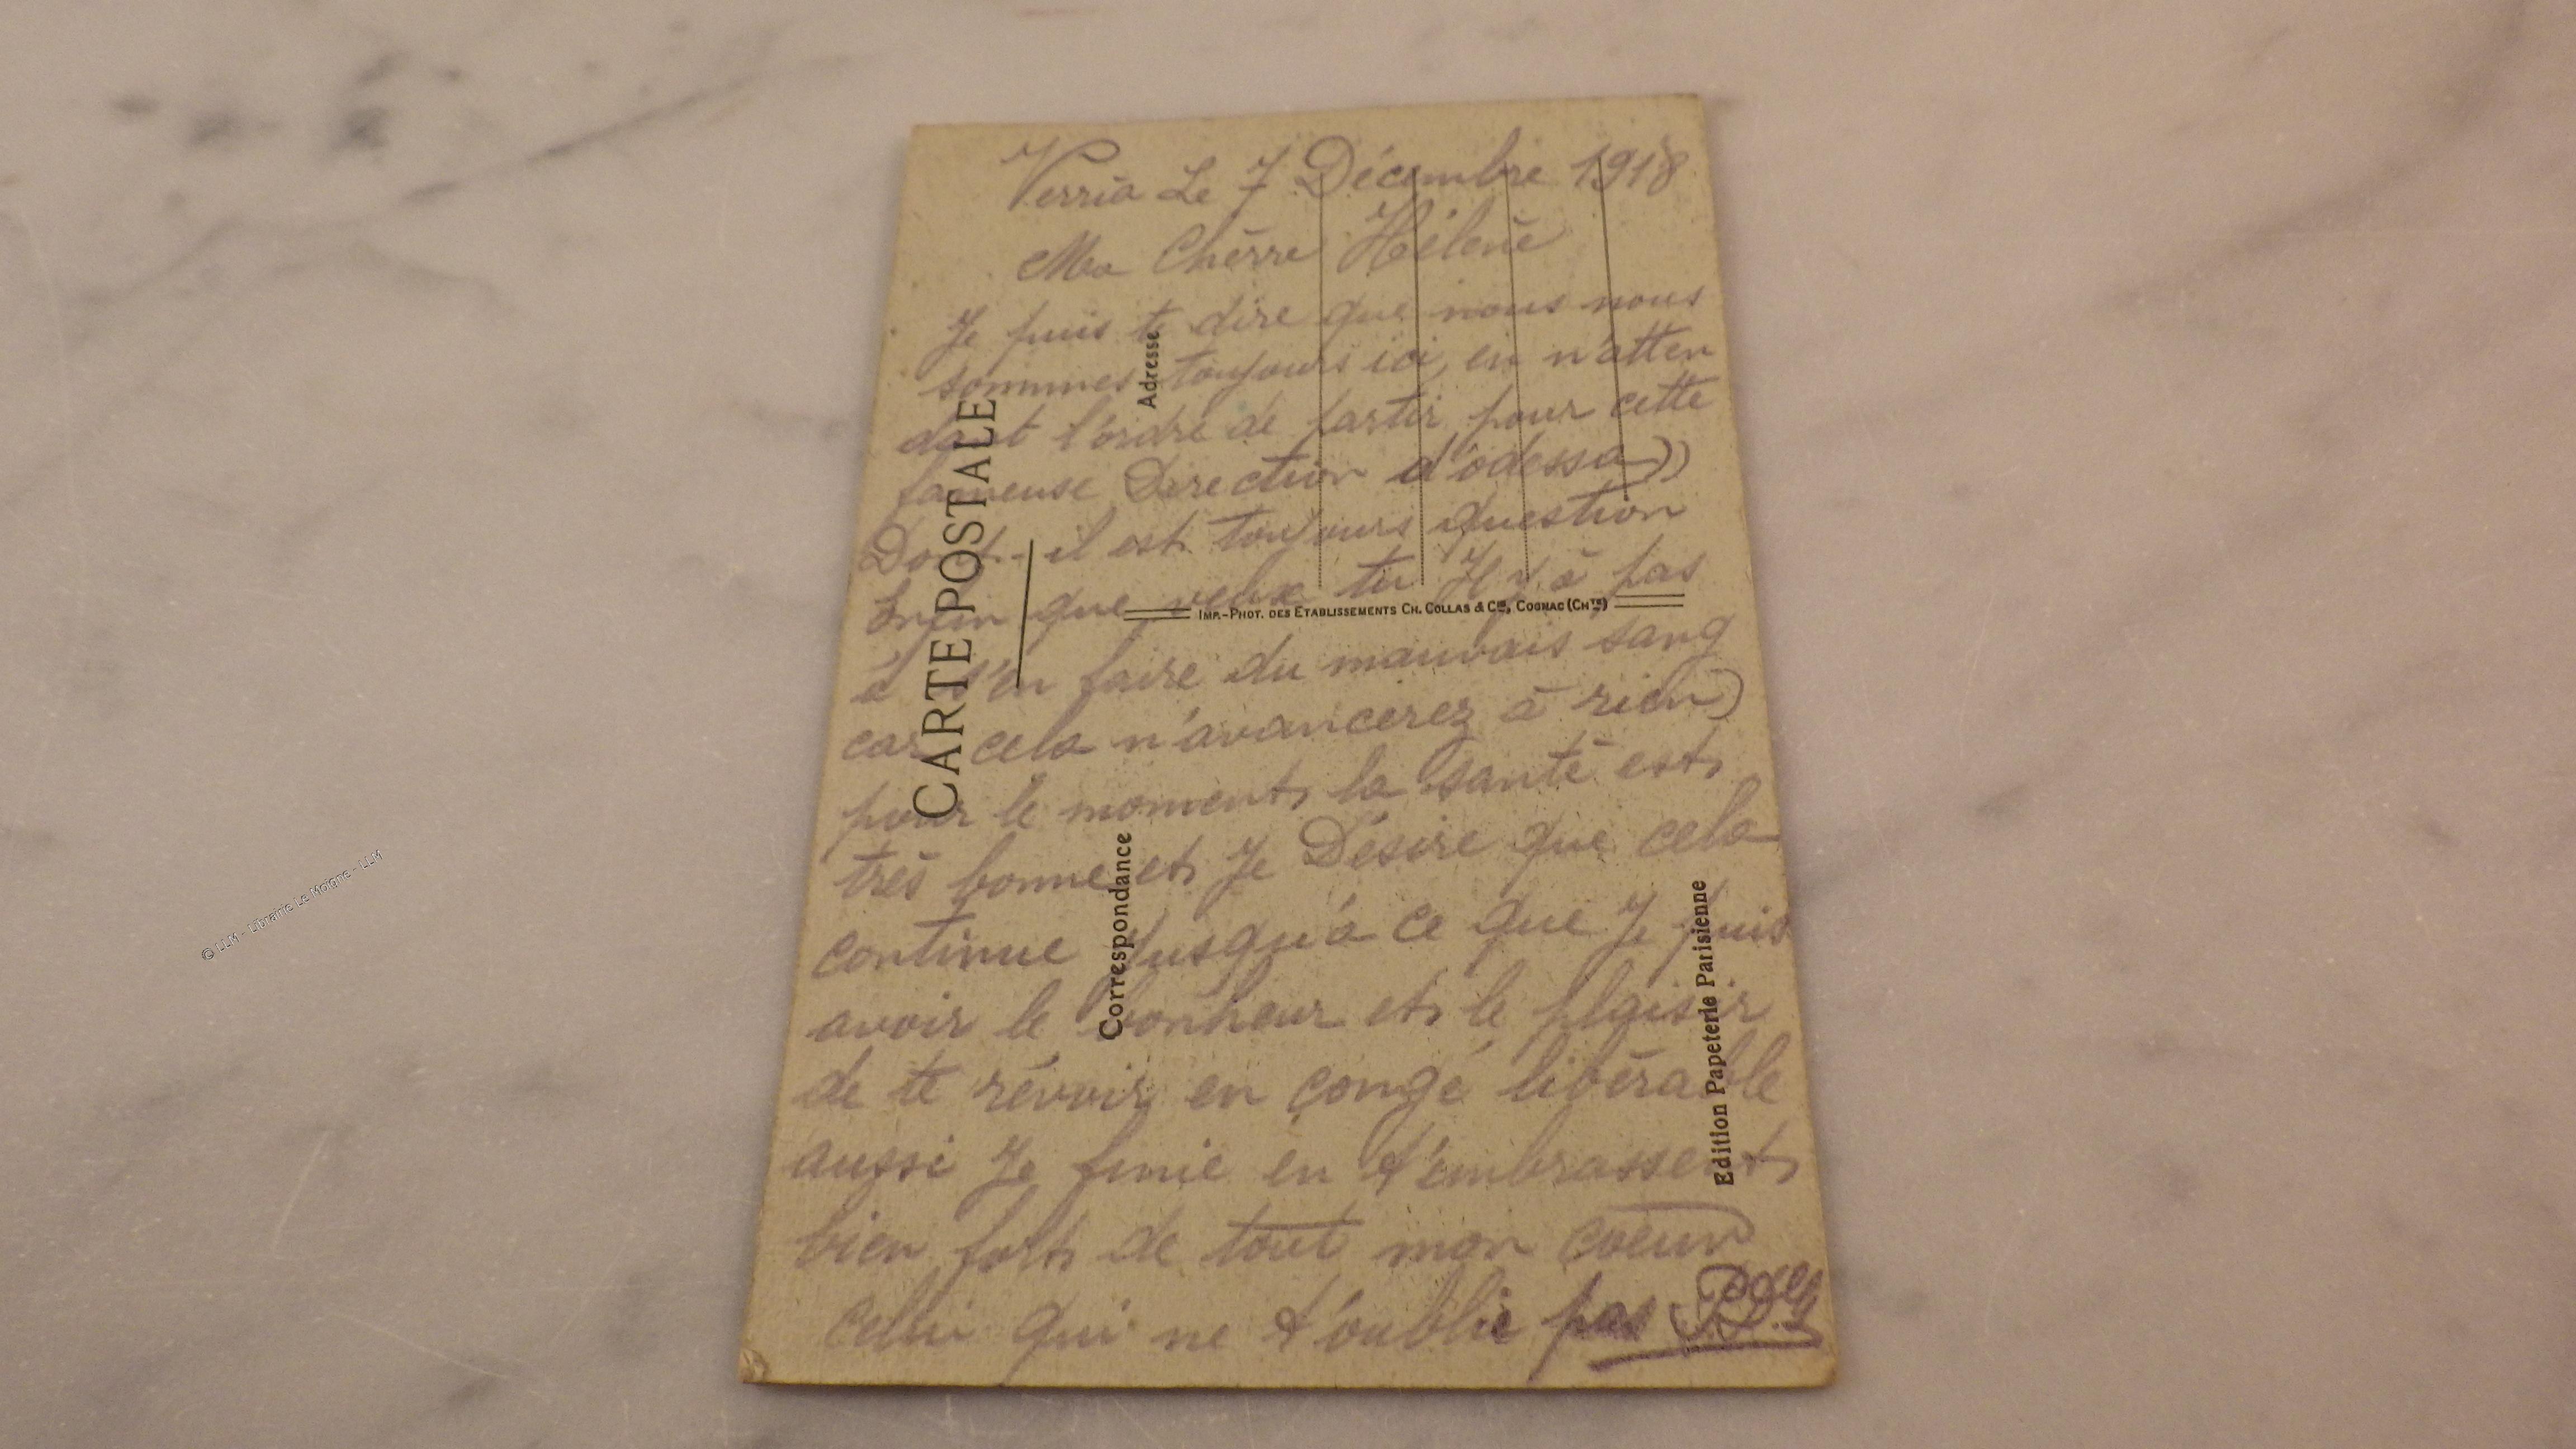 Verria Le 7 Décembre 1918
Ma Chèrre Hélène
Je puis te dire que nous nous
sommes toujours ici, en n'atten
dant l'ordre de partir pour cette
fameuse Direction d'odessa))
Dont il est toujours question
Enfin que veux tu Il y à pas
à s'en faire du mauvais sang
car cela n'avancerez à rien)
pour le moment la santé est
très bonne et Je Désire que cela
continue Jusqu'à ce que Je puis
avoir le bonheur et le plaisir
de te révoir en congé libérable
aussi Je finie en t'embrassent
bien fort de tout mon coeur
cellui qui ne t'oublie pas
CARTE POSTALE
Adresse
Correspondance
IMP.-PHOT. DES ETABLISSEMENTS CH. COLLAS & CIE, COGNAC (CHTE)
Edition Papeterie Parisienne
© LLM - Librairie Le Moigne - LLM